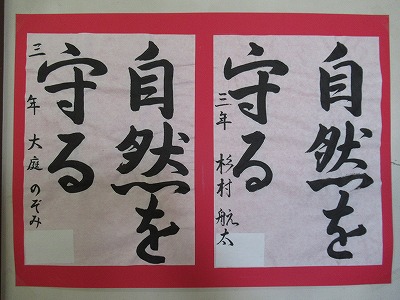 自然を
守る
三年 杉村 航太
自然を
守る
三年 大庭 のぞみ